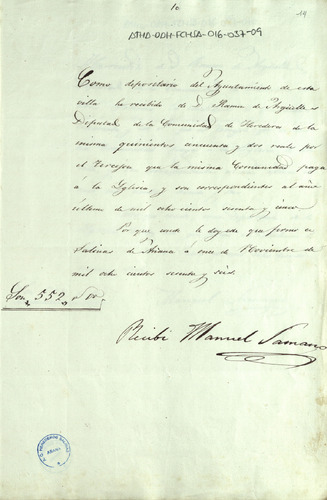 10
19
ATHA-DDH-FCHSA-016-037-09
Como depositario del Ayuntamiento de esta
villa he recibido de D. Ramon de Argüelles
Diputado de la Comunidad de Herederos de la
misma quinientos cincuenta y dos reales por
el que la misma Comunidad paga
á la Yglesia, y son correspondientes al año
último de mil ocho ciento sesenta y cinco
Por que conste le doy este que firmo en
Salinas de Añana á once de Noviembre de
mil ocho cientos sesenta y seis.
Son 552
Recibi Manuel Samano